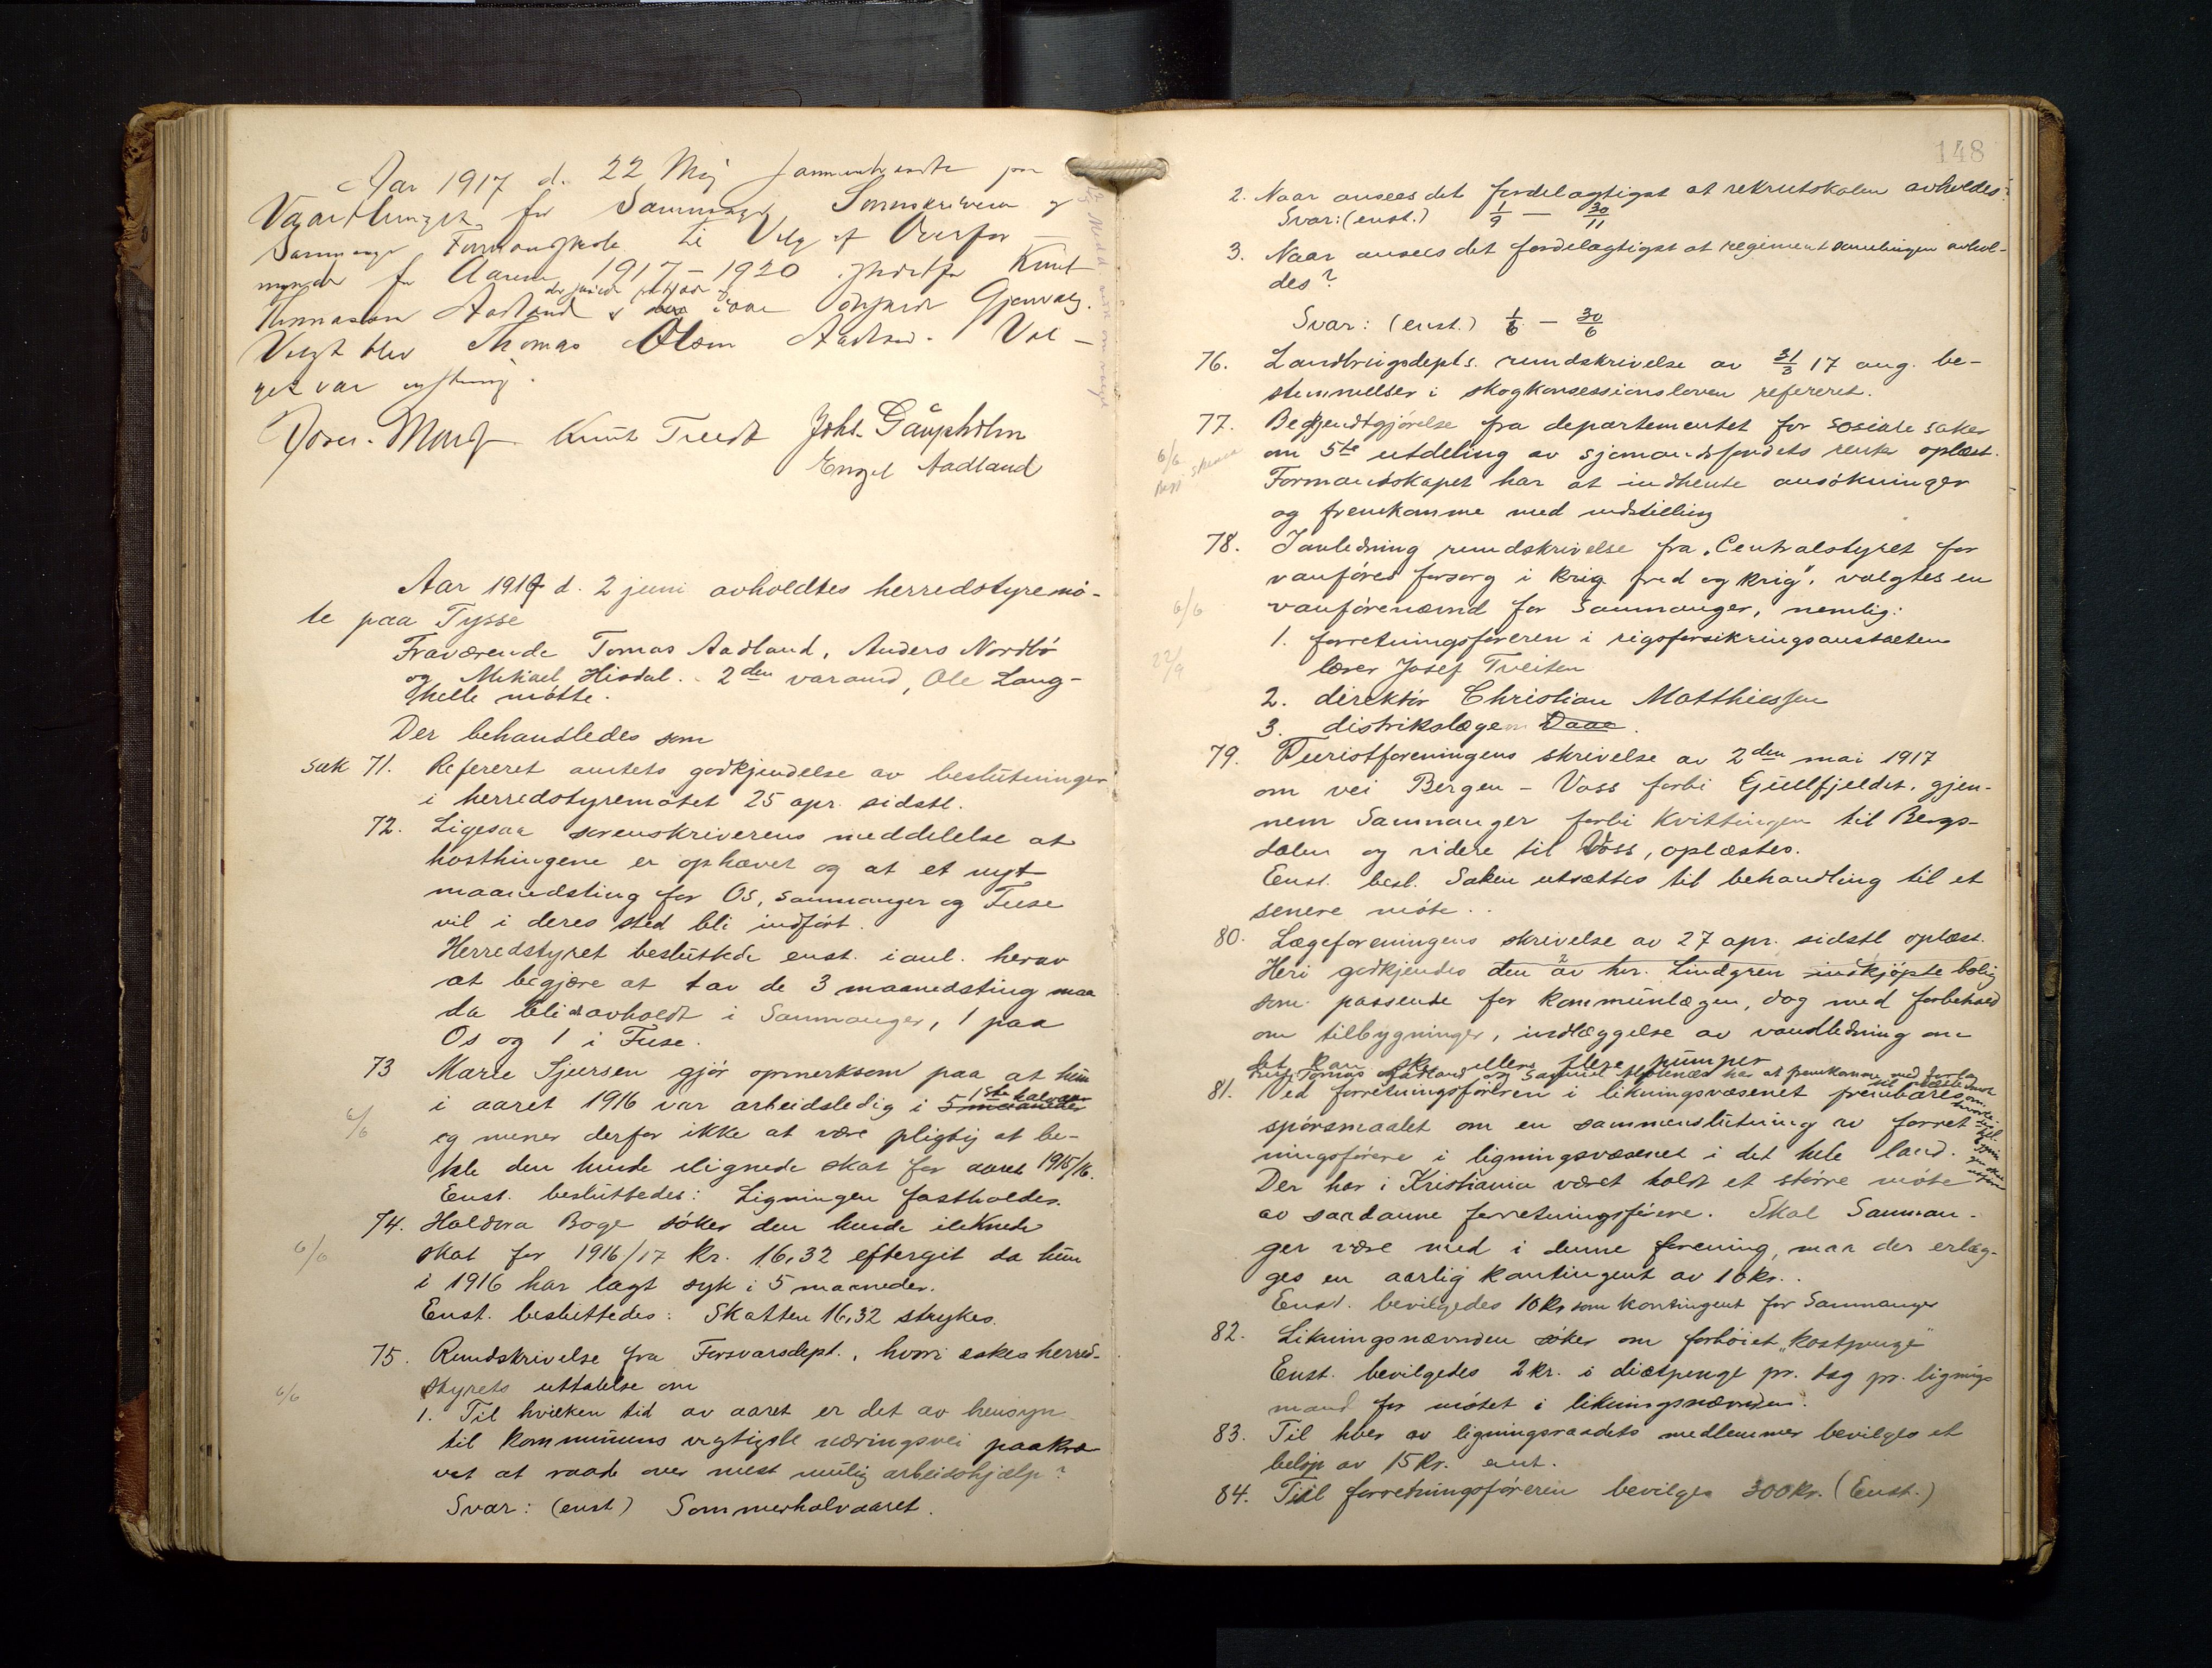 Aar 1917 d. 22 Maj sammentraadte paa
Vaarthinget for Samnanger Sorenskriveren og
Samnanger Formandskab til Valg af Overfor-
mynder for Aarene 1917-1920 istedetfor Knut
Tomassen Aadland
Valgt blev Thomas Olsen Aadland. Val-
get var enstemmig.
Knut Tveidt Johs. Gäupholm
Engel Aadland
Aar 1917 d. 2 juni avholdtes herredstyremö-
te paa Tysse
Fraværende Tomas Aadland, Anders Nordbö
og Mikael Hisdal. 2den varamd, Ole Lang-
helle mötte.
Der behandledes som
Sak 71. Refereret amtets godkjendelse av beslutninger
i herredstyremötet 25 apr. sidstl.
72. Ligesaa sorenskriverens meddelelse at
hösthingene er ophævet og at et nyt
maanedsting for Os, Samnanger og Fuse
vil i deres sted bli indfört.
Herredstyret besluttede enst. i anl. herav
at begjære at 1 av de 3 maanedsting maa
da bli avholdt i Samnanger, 1 paa
Os og 1 i Fuse.
73 Marie Sjursen gjör opmerksom paa at hun
i aaret 1916 var arbeidsledig i 5 maaneder 1ste halvaar
6/6
og mener derfor ikke at være pligtig at be-
tale den hende ilignede skat for aaret 1915/16.
Enst. besluttedes: Ligningen fastholdes.
74. Haldora Boge söker den hende iliknede
6/6
skat for 1916/17 kr. 16,32 eftergit da hun
i 1916 har lagt syk i 5 maaneder.
Enst. besluttedes: Skatten 16,32 strykes.
75. Rundskrivelse fra Forsvarsdept., hvori æskes herred-
6/6
styrets uttalelse om
1. Til hvilken tid av aaret er det av hensyn
til kommunens vigtigste næringsvei paakræ
vet at raade over mest mulig arbeidshjælp?
Svar: (enst) Sommerhalvaaret.
148
2. Naar ansees det fordelagtigst at rekrutskolen avholdes?
Svar: (enst.) 1/9 - 30/11
3. Naar ansees det fordelagtigst at regimentsamlingen avhol-
des?
Svar: (enst.) 1/6 - 30/6
76. Landbrugsdepts. rundskrivelse av 31/3 17 ang. be-
stemmelser i skogkonsessionsloven refereret.
77. Bekjendtgjörelse fra departementet for sosiale saker
6/6
om 5te utdeling av sjömandsfondets renter oplæst.
Formandskapet har at indhente ansökninger
og fremkomme med indstilling
78. I anledning rundskrivelse fra "Centralstyret for
vanföres forsorg i krig fred og krig", valgtes en
6/6
vanförenemnd for Samnanger, nemlig:
1. forretningsföreren i rigsforsikringsanstalten
22/9
lærer Josef Tveiten
2. direktör Christian Matthiessen
3. distrikslægen Daae.
79. Turistforeningens skrivelse av 2den mai 1917
om vei Bergen - Voss forbi Gullfjeldet, gjen-
nem Samnanger forbi Kvittingen til Bergs-
dalen og videre til Voss, oplæstes.
Enst. besl. Saken utsættes til behandling til et
senere möte.
80. Lægeforeningens skrivelse av 27 apr. sidstl oplæst.
Heri godkjendes den av hr. Lindgren indkjöpte bolig
som passende for kommunlægen, dog med forbehold
om tilbygninger, indlæggelse av vandledning om
det kan ske ellers flere pumper
81. Ved forretningsföreren i likningsvæsenet frembares
spörsmaalet om en sammenslutning av forret-
ningsförere i ligningsvæsenet i det hele land.
Der har i Kristiania været holdt et större möte
av saadanne forretningsförere. Skal Samnan-
ger være med i denne forening, maa der erlæg-
ges en aarlig kontingent av 10 kr.
Enst. bevilgedes 10 kr som kontingent for Samnanger
82. Likningsnævnden söker om forhöiet "kostpenge"
Enst. bevilgedes 2 kr. i diætpenge pr. dag pr. lignings
mand for mötet i likningsnævnden.
83. Til hver av ligningsraadets medlemmer bevilges et
belöp av 15 kr. enst.
84. Till forretningsföreren bevilges 300 kr. (Enst.)